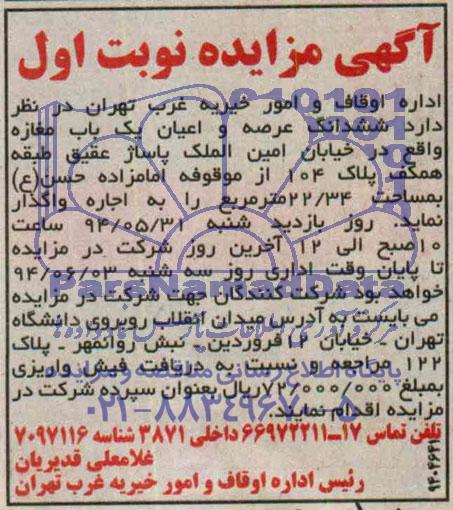 آگهی مزایده نوبت اول
اداره اوقاف و امور خیریه غرب تهران در نظر
دارد ششدانگ عرصه و اعیان یک باب مغازه
واقع در خیابان امین الملک پاساژ عقیق طبقه
همکف پلاک ۱۰۴ از موقوفه امامزاده حسن(ع)
بمساحت ۲۲/۳۴مترمربع را به اجاره واگذار
نماید. روز بازدید شنبه ۹۴/۰۵/۳۱ ساعت
۱۰صبح الی ۱۲ آخرین روز شرکت در مزایده
تا پایان وقت اداری روز سه شنبه ۹۴/۰۶/۰۳
خواهد بود شرکت کنندگان جهت شرکت در مزایده
می بایست به آدرس میدان انقلاب روبروی دانشگاه
تهران - خیابان ۱۲فروردین - نبش روانمهر - پلاک
۱۲۲ مراجعه و نسبت به دریافت فیش واریزی
بمبلغ ۷۲/۰۰۰/۰۰۰ریال بعنوان سپرده شرکت در
مزایده اقدام نمایند.
تلفن تماس ۱۷-۶۶۹۷۲۲۱۱داخلی ۳۸۷۱ شناسه ۷۰۹۷۱۱۶
غلامعلی قدیریان
رئیس اداره اوقاف و امور خیریه غرب تهران
ParsNamadData
۰۲۱-۸۸۳۴۹۶۷۰-۵